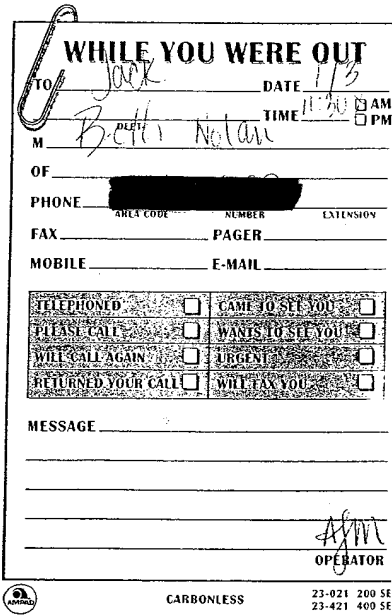 WHILE YOU WERE OUT
TO Jack DATE 1/3
TIME 11:30 AM
PM
DEPT.
M Beth Nolan
OF
PHONE
AREA CODE NUMBER EXTENSION
FAX PAGER
MOBILE E-MAIL
TELEPHONED CAME TO SEE YOU
PLEASE CALL WANTS TO SEE YOU
WILL CALL AGAIN URGENT
RETURNED YOUR CALL WILL FAX YOU
MESSAGE
AJM
OPERATOR
AMPAD CARBONLESS 23-021 200 SE
23-421 400 SE